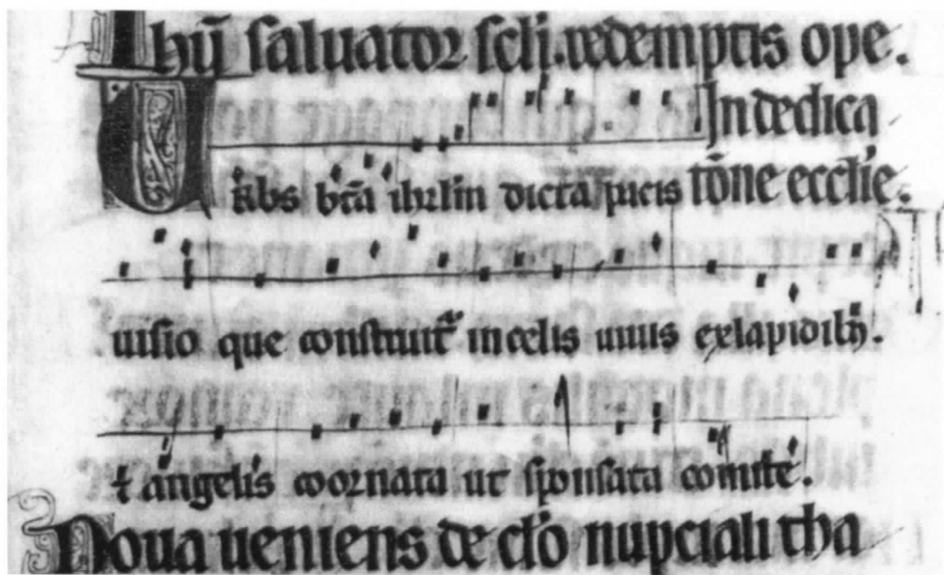 Ihū saluator scli. redemptis ope.
In dedica
Urbs bt̄a ihrlm dicta pacis tōne ecclie.
uisio que construit̄ in celis uiuis ex lapidib;.
⁊ angelis coornata ut sponsata comite.
Noua ueniens de cl̄o nupciali tha